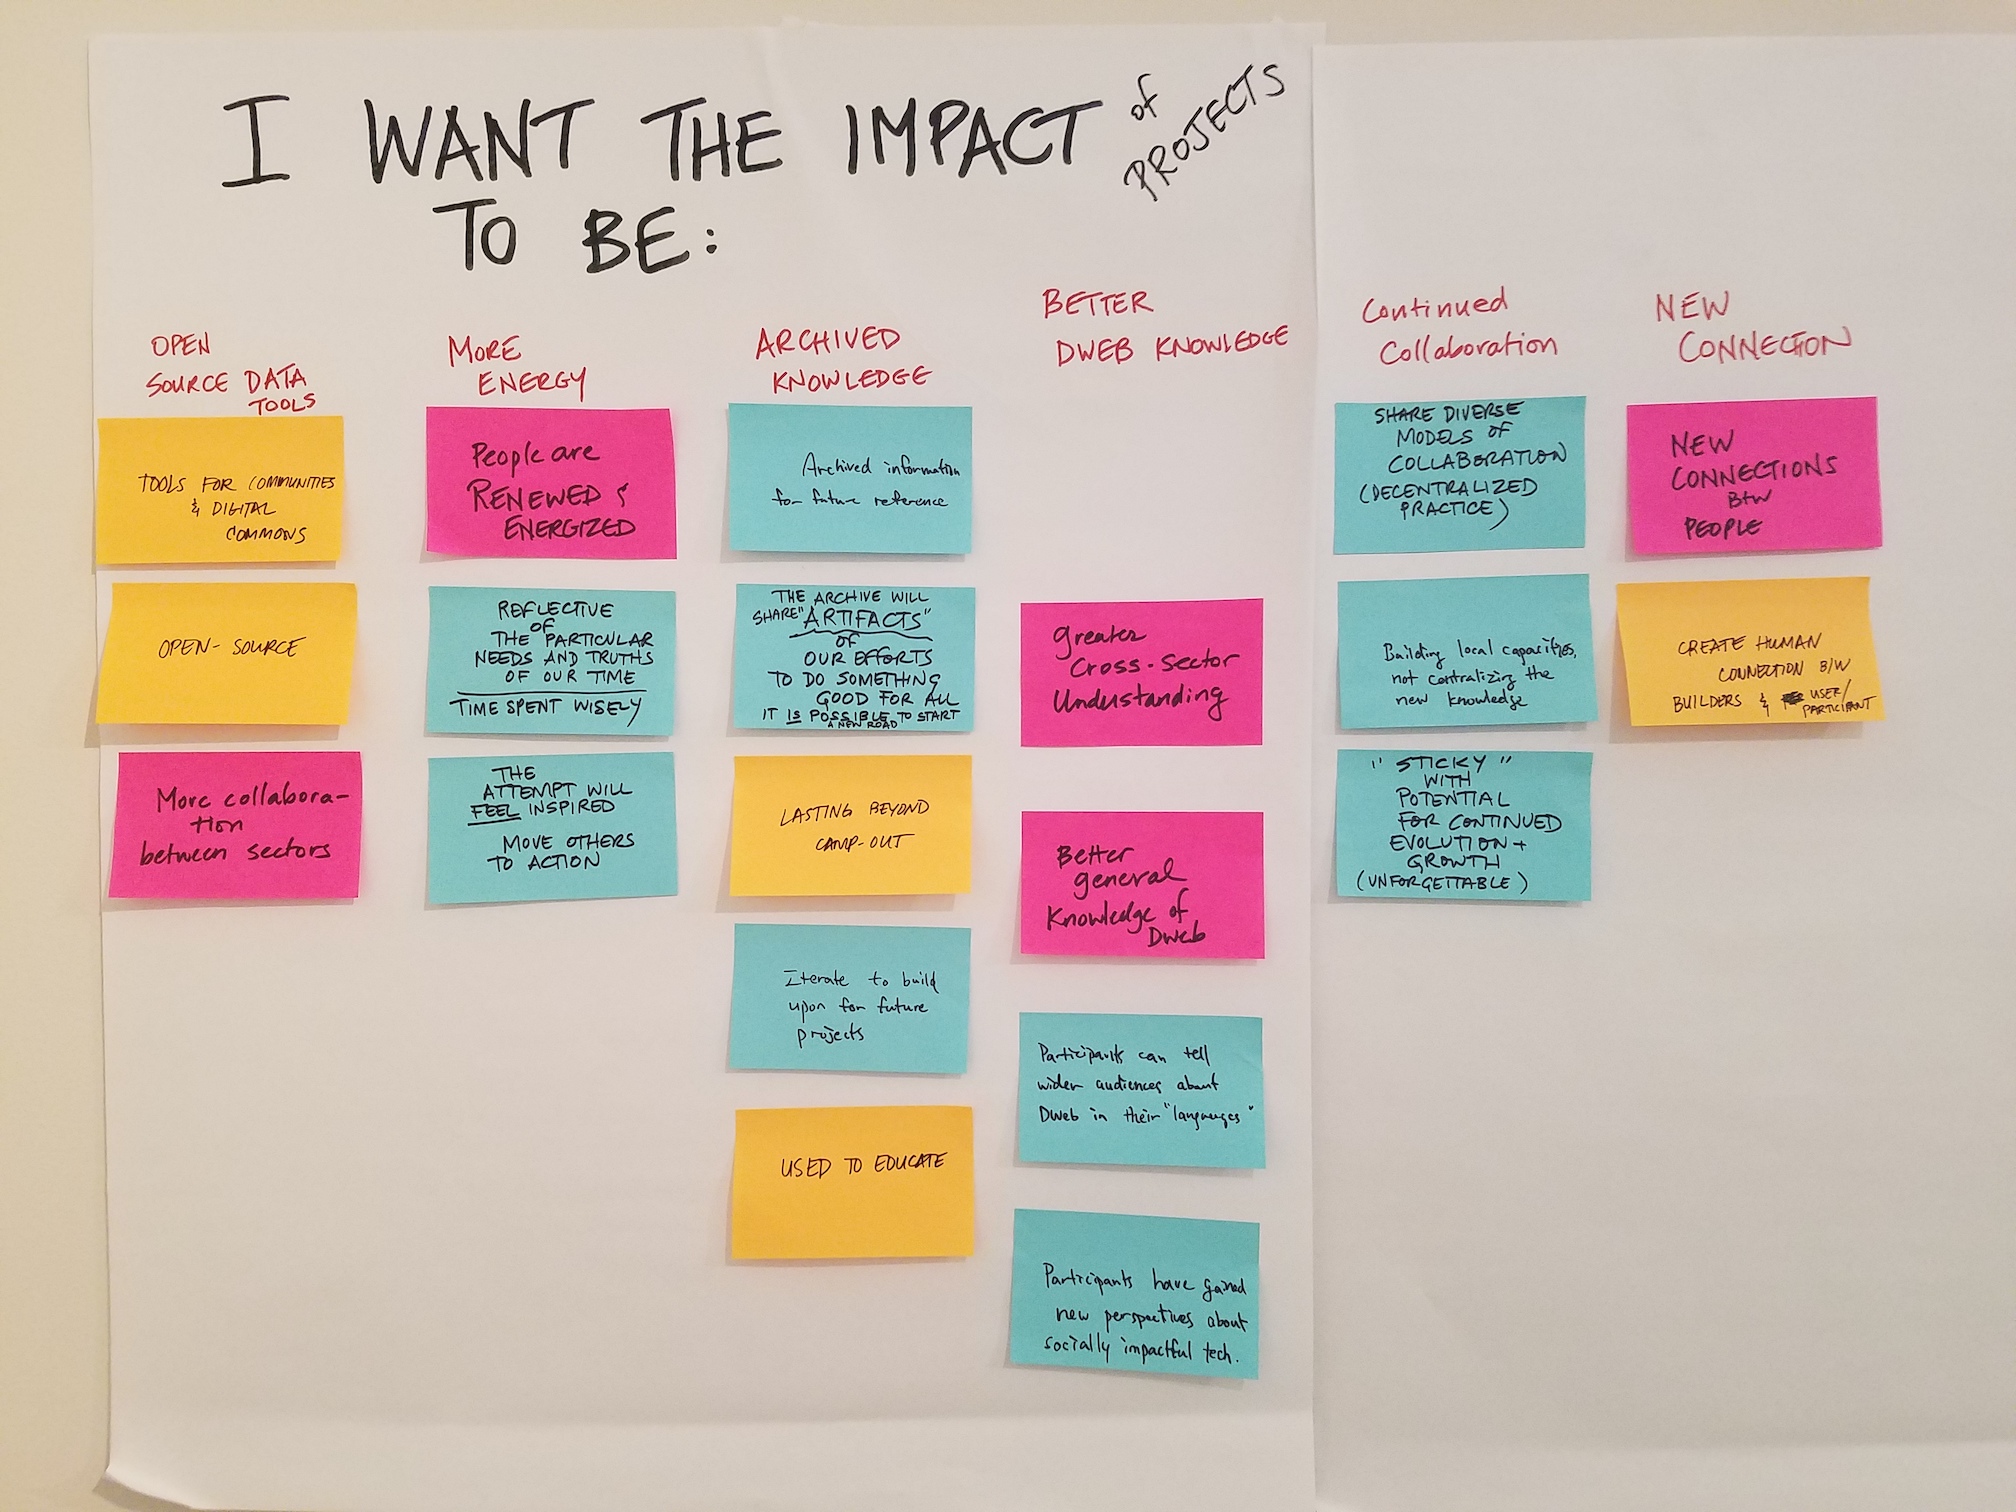 I WANT THE IMPACT of PROJECTS
TO BE:
OPEN
SOURCE DATA
TOOLS
TOOLS FOR COMMUNITIES
& DIGITAL
COMMONS
OPEN-SOURCE
More collabora-
tion
between sectors
MORE
ENERGY
People are
RENEWED &
ENERGIZED
REFLECTIVE
OF
THE PARTICULAR
NEEDS AND TRUTHS
OF OUR TIME
TIME SPENT WISELY
THE
ATTEMPT WILL
FEEL INSPIRED
MOVE OTHERS
TO ACTION
ARCHIVED
KNOWLEDGE
Archived information
for future reference
THE ARCHIVE WILL
SHARE "ARTIFACTS"
OF
OUR EFFORTS
TO DO SOMETHING
GOOD FOR ALL
IT IS POSSIBLE TO START
A NEW ROAD
LASTING BEYOND
CAMP-OUT
Iterate to build
upon for future
projects
USED TO EDUCATE
BETTER
DWEB KNOWLEDGE
Greater
Cross-sector
Understanding
Better
general
Knowledge of
Dweb
Participants can tell
wider audiences about
Dweb in their "languages"
Participants have gained
new perspectives about
socially impactful tech.
Continued
Collaboration
SHARE DIVERSE
MODELS OF
COLLABERATION
(DECENTRALIZED
PRACTICE)
Building local capacities,
not centralizing the
new knowledge
"STICKY"
WITH
POTENTIAL
FOR CONTINUED
EVOLUTION +
GROWTH
(UNFORGETTABLE)
NEW
CONNECTION
NEW
CONNECTIONS
BTW
PEOPLE
CREATE HUMAN
CONNECTION B/W
BUILDERS & USER/
PARTICIANT